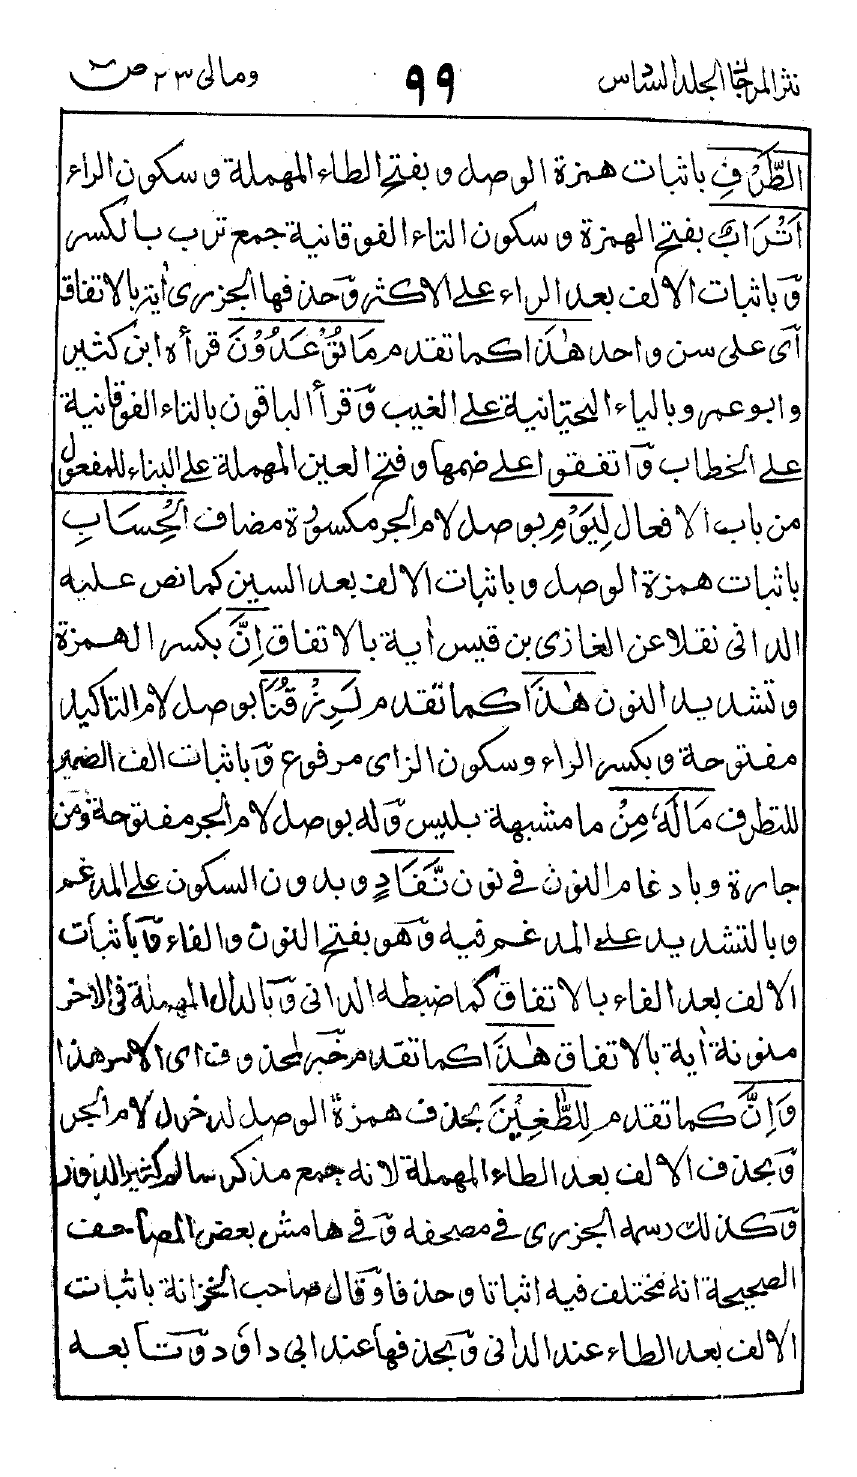 نثر المرجان الجلد السادس ٩٩ ومالی ٢٣ ص
الطَّرْفِ باثبات همزة الوصل وبفتح الطاء المهملة وسكون الراء
اَتْرَابٌ بفتح الهمزة وسكون التاء الفوقانية جمع ترب بالكسر
وباثبات الالف بعد الراء على الاكثر وحذفها الجزرى اٰية بالاتفاق
اى على سن واحد هٰذَا كما تقدم مَا تُوْعَدُوْنَ قرأه ابن كثير
وابو عمرو بالياء التحتانية على الغيب وقرأ الباقون بالتاء الفوقانية
على الخطاب واتفقوا على ضمها وفتح العين المهملة على البناء للمفعول
من باب الافعال لِيَوْمِ بوصل لام الجر مكسورة مضاف الْحِسَابِ
باثبات همزة الوصل وباثبات الالف بعد السين كما نص عليه
الدانى نقلا عن الغازى بن قيس اٰية بالاتفاق اِنَّ بكسر الهمزة
وتشديد النون هٰذَا كما تقدم لَرِزْقُنَا بوصل لام التاكيد
مفتوحة وبكسر الراء وسكون الزاى مرفوع وباثبات الف الضمير
للتطرف مَا لَهٗ مِنْ ما مشبهة بليس وله بوصل لام الجر مفتوحة ومن
جارة وبادغام النون فى نون نَّفَادٍ وبدون السكون على المدغم
وبالتشديد على المدغم فيه وهو بفتح النون والفاء وباثبات
الالف بعد الفاء بالاتفاق كما ضبطه الدانى وبالدال المهملة فى الاٰخر
منونة اٰية بالاتفاق هٰذَا كما تقدم خبر لمحذوف اى الامر هذا
وَاِنَّ كما تقدم لِلطّٰغِيْنَ بحذف همزة الوصل لدخول لام الجر
وبحذف الالف بعد الطاء المهملة لانه جمع مذكر سالم كثير الدور
وكذلك رسمه الجزرى فى مصحفه وفى هامش بعض المصاحف
الصحيحة انه مختلف فيه اثباتا وحذفا وقال صاحب الخزانة باثبات
الالف بعد الطاء عند الدانى وبحذفها عند ابى داود وتابعه